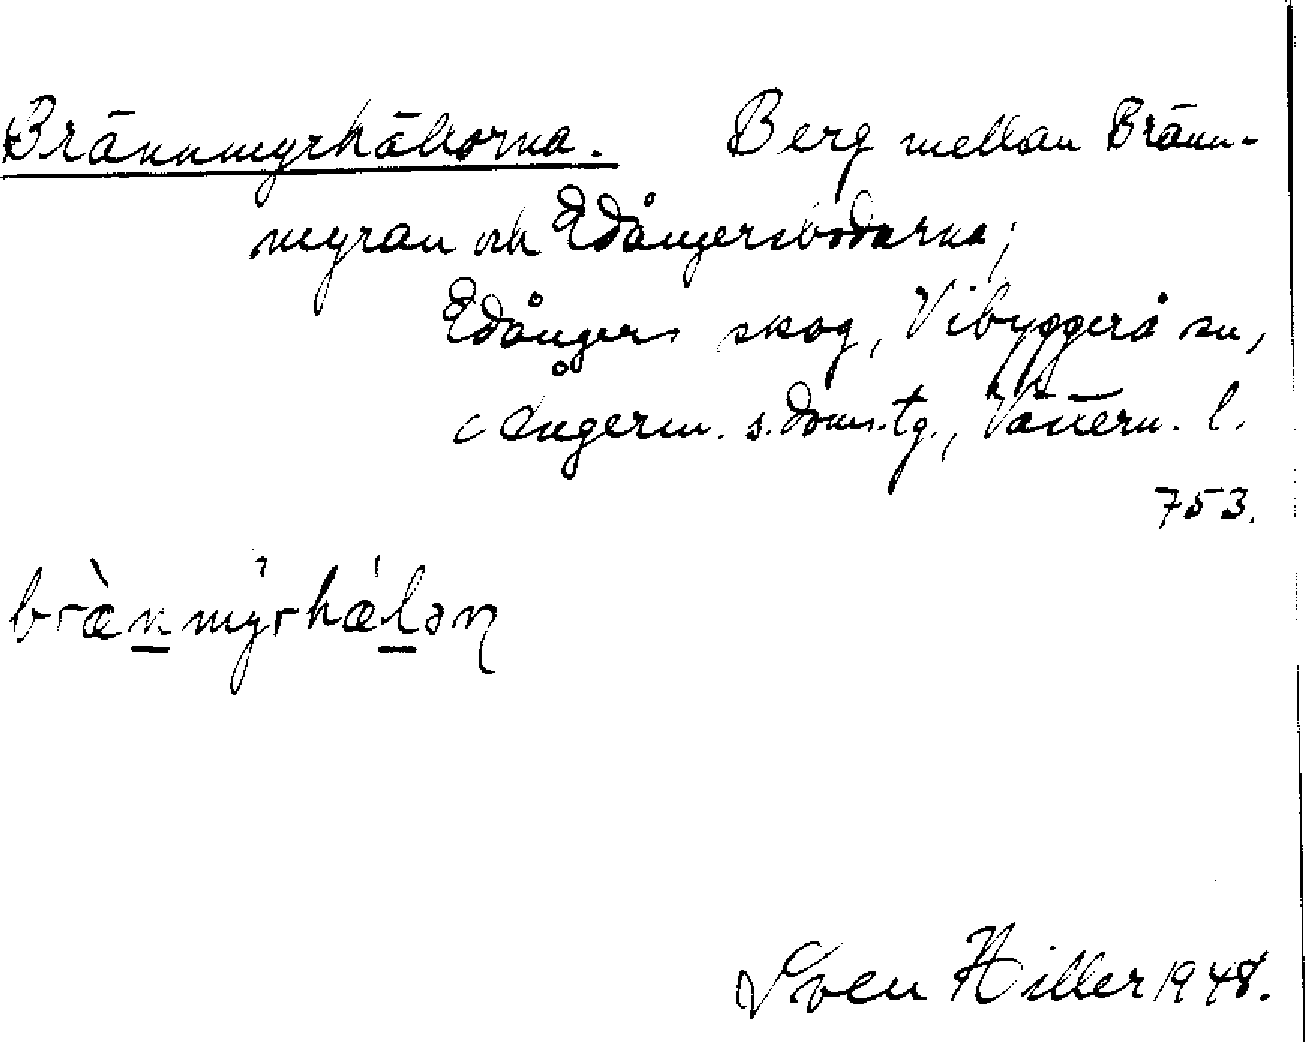 Brännmyrhällorna. Berg mellan Bränn-
myran och Edångersbodarna;
Edångers skog, Vibyggerå sn,
Ångerm. s. doms. tg., Västern. l.
753.
brànmyrhælaɳ
Sven Hiller 1948.